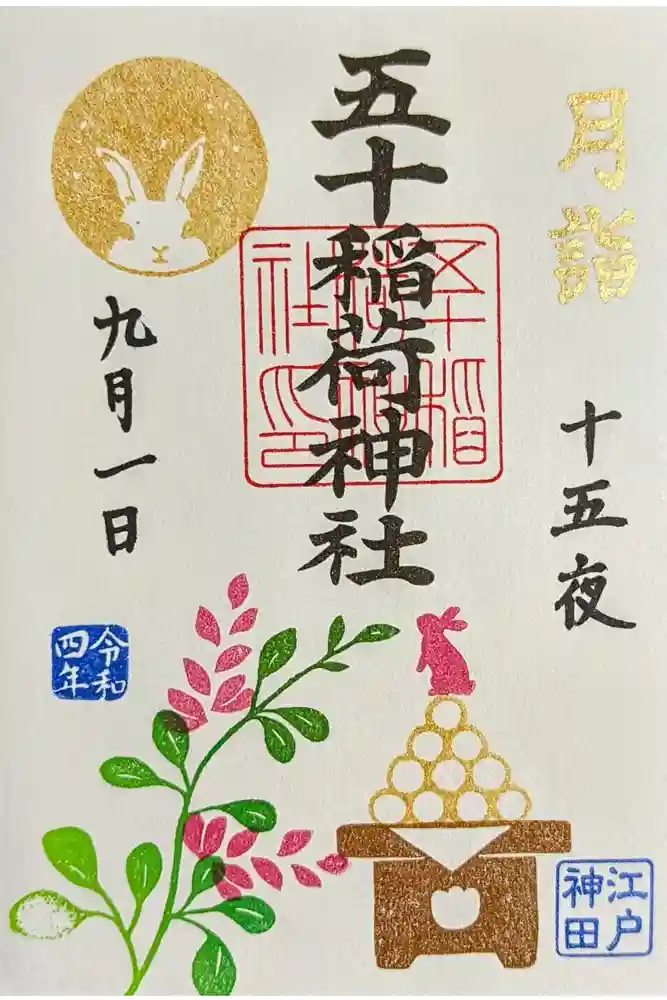 月詣
十五夜
五十稲荷神社
五十稲荷神社印
九月一日
令和四年
江戸神田